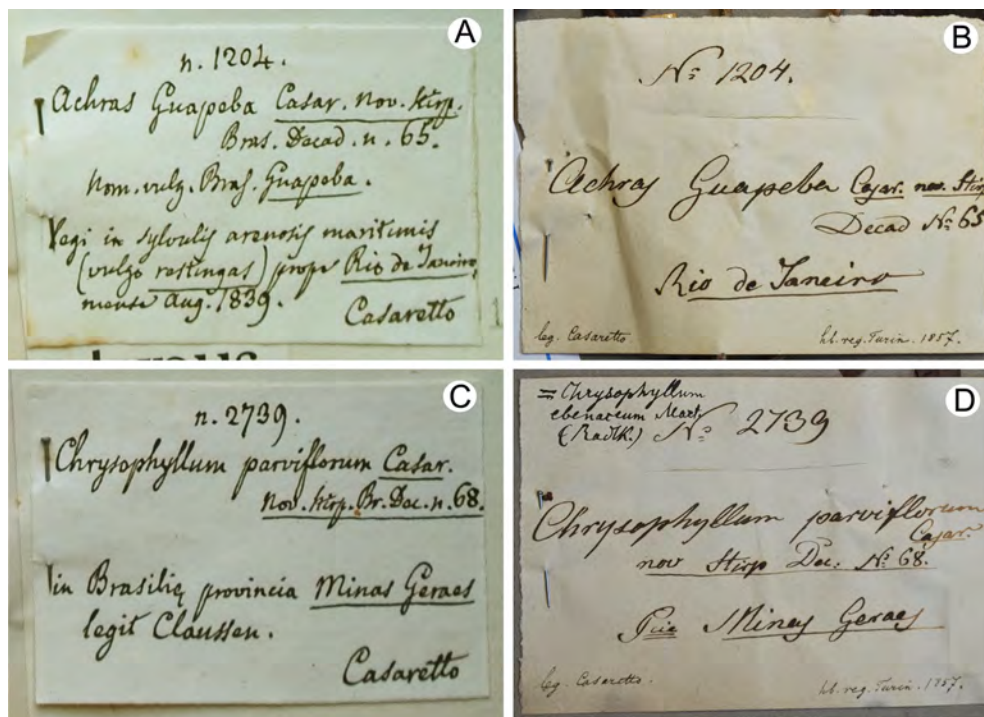 A
n. 1204.
Achras Guapeba Casar. nov. stirp.
Bras. Decad. n. 65.
Nom. vulg. Bras. Guapeba.
Legi in sylvulis arenosis maritimis
(vulgo restingas) prope Rio de Janeiro,
mense Aug. 1839.
Casaretto
B
Nº 1204.
Achras Guapeba Casar. nov. Stirp
Decad Nº 65
Rio de Janeiro
leg. Casaretto.
hb. reg. Turin. 1857.
C
n. 2739.
Chrysophyllum parviflorum Casar.
Nov. stirp. Br. Dec. n. 68.
in Brasilię provincia Minas Geraes
legit Claussen.
Casaretto
D
= Chrysophyllum
ebenaceum Mart.
(Radlk.)
Nº 2739
Chrysophyllum parviflorum
Casar.
nov Stirp Dec. Nº 68.
Pcie Minas Geraes
leg. Casaretto.
hb. reg. Turin. 1857.